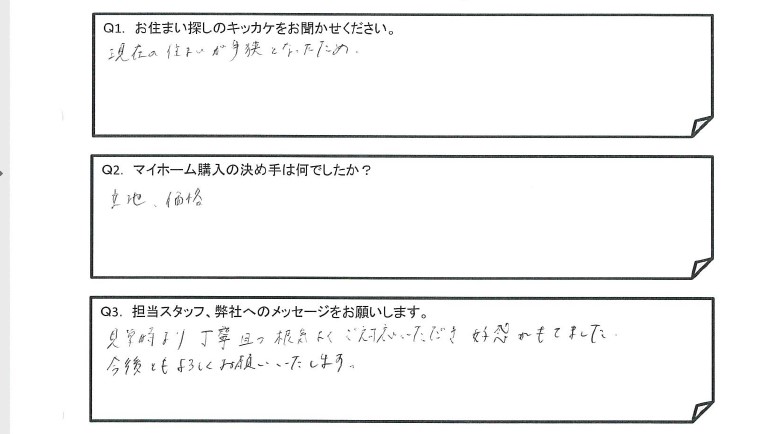 Q1. お住まい探しのキッカケをお聞かせください。
現在の住まいが手狭となったため.
Q2. マイホーム購入の決め手は何でしたか？
立地、価格
Q3. 担当スタッフ、弊社へのメッセージをお願いします。
見学時より丁寧且つ根気よくご対応いただき好感がもてました.
今後ともよろしくお願いいたします。